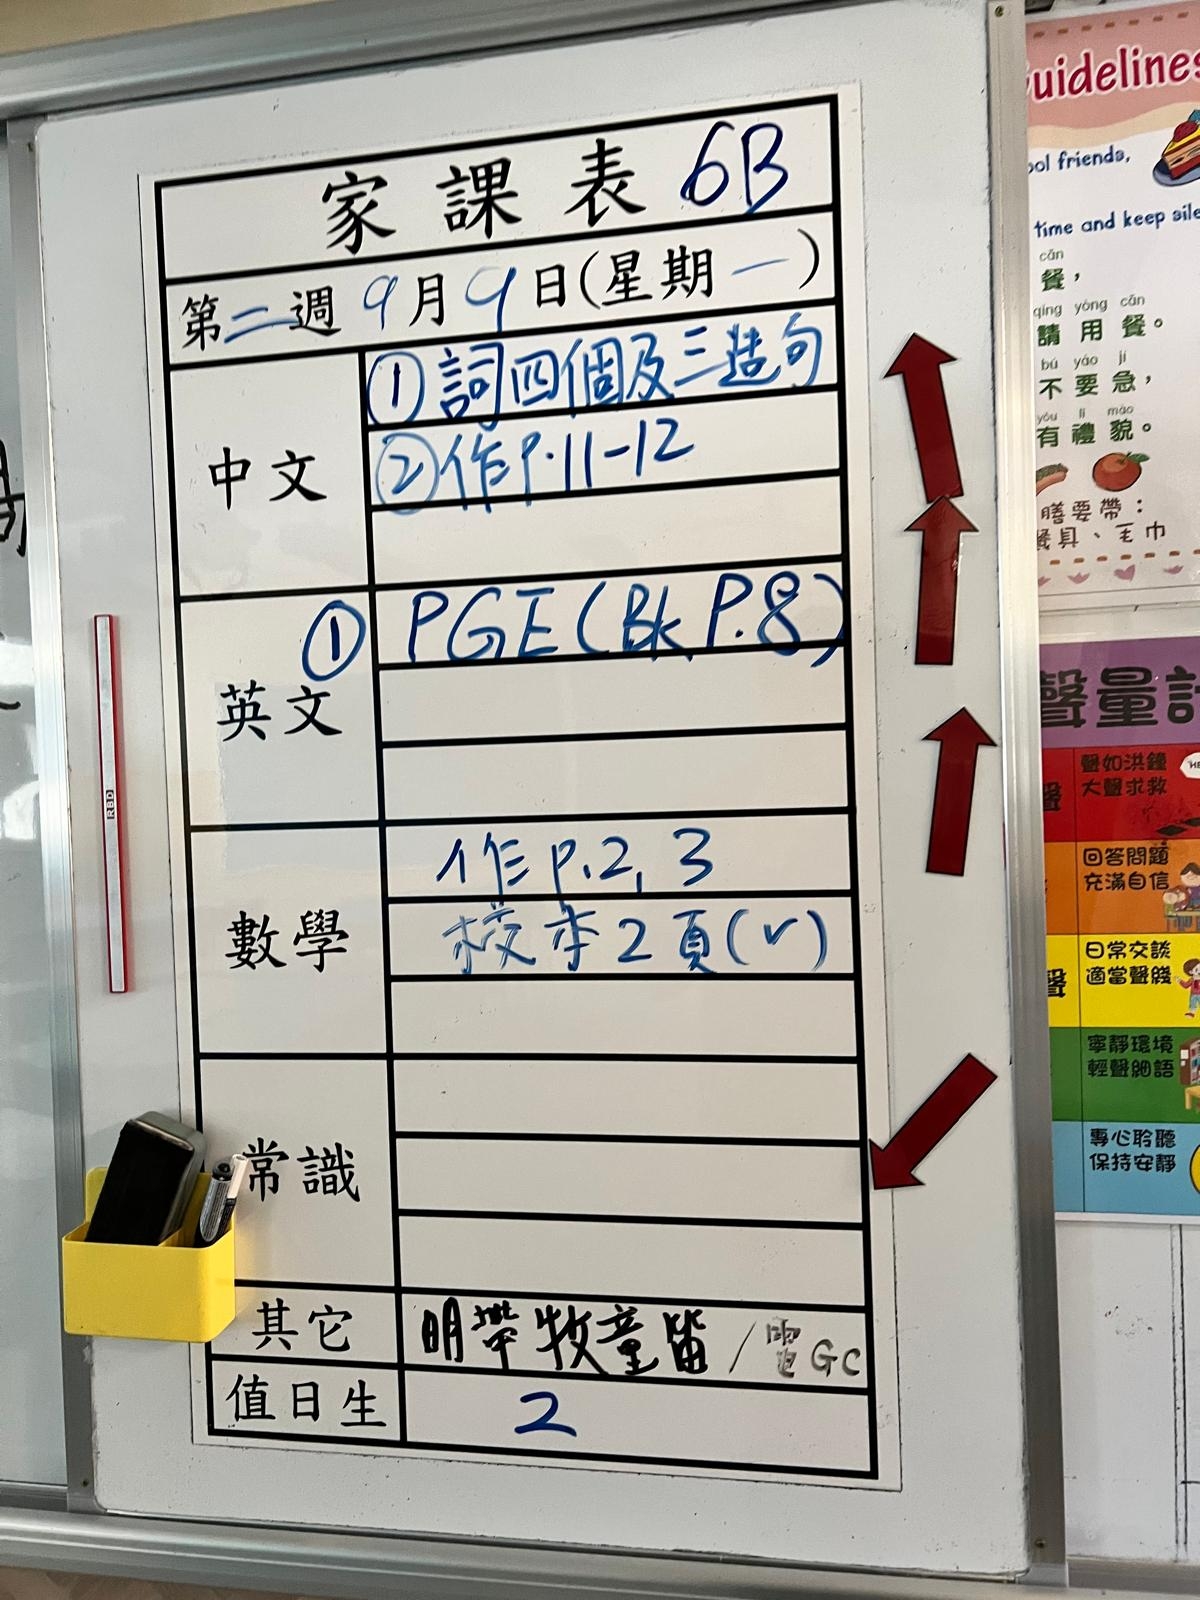 家課表 6B
第二週 9月9日(星期一)
中文
①詞四個及三造句
②作P.11-12
英文
① PGE(Bk P.8)
數學
作p.2,3
校本2頁(v)
常識
其它
明帶牧童笛/電GC
值日生
2
DBR
Guidelines
ool friends,
time and keep sile
cān
餐，
qǐng yòng cān
請用餐。
bú yào jí
不要急，
yǒu lǐ mào
有禮貌。
膳要帶：
餐具、毛巾
聲量計
聲如洪鐘
大聲求救
HE
回答問題
充滿自信
日常交談
適當聲綫
寧靜環境
輕聲細語
專心聆聽
保持安靜